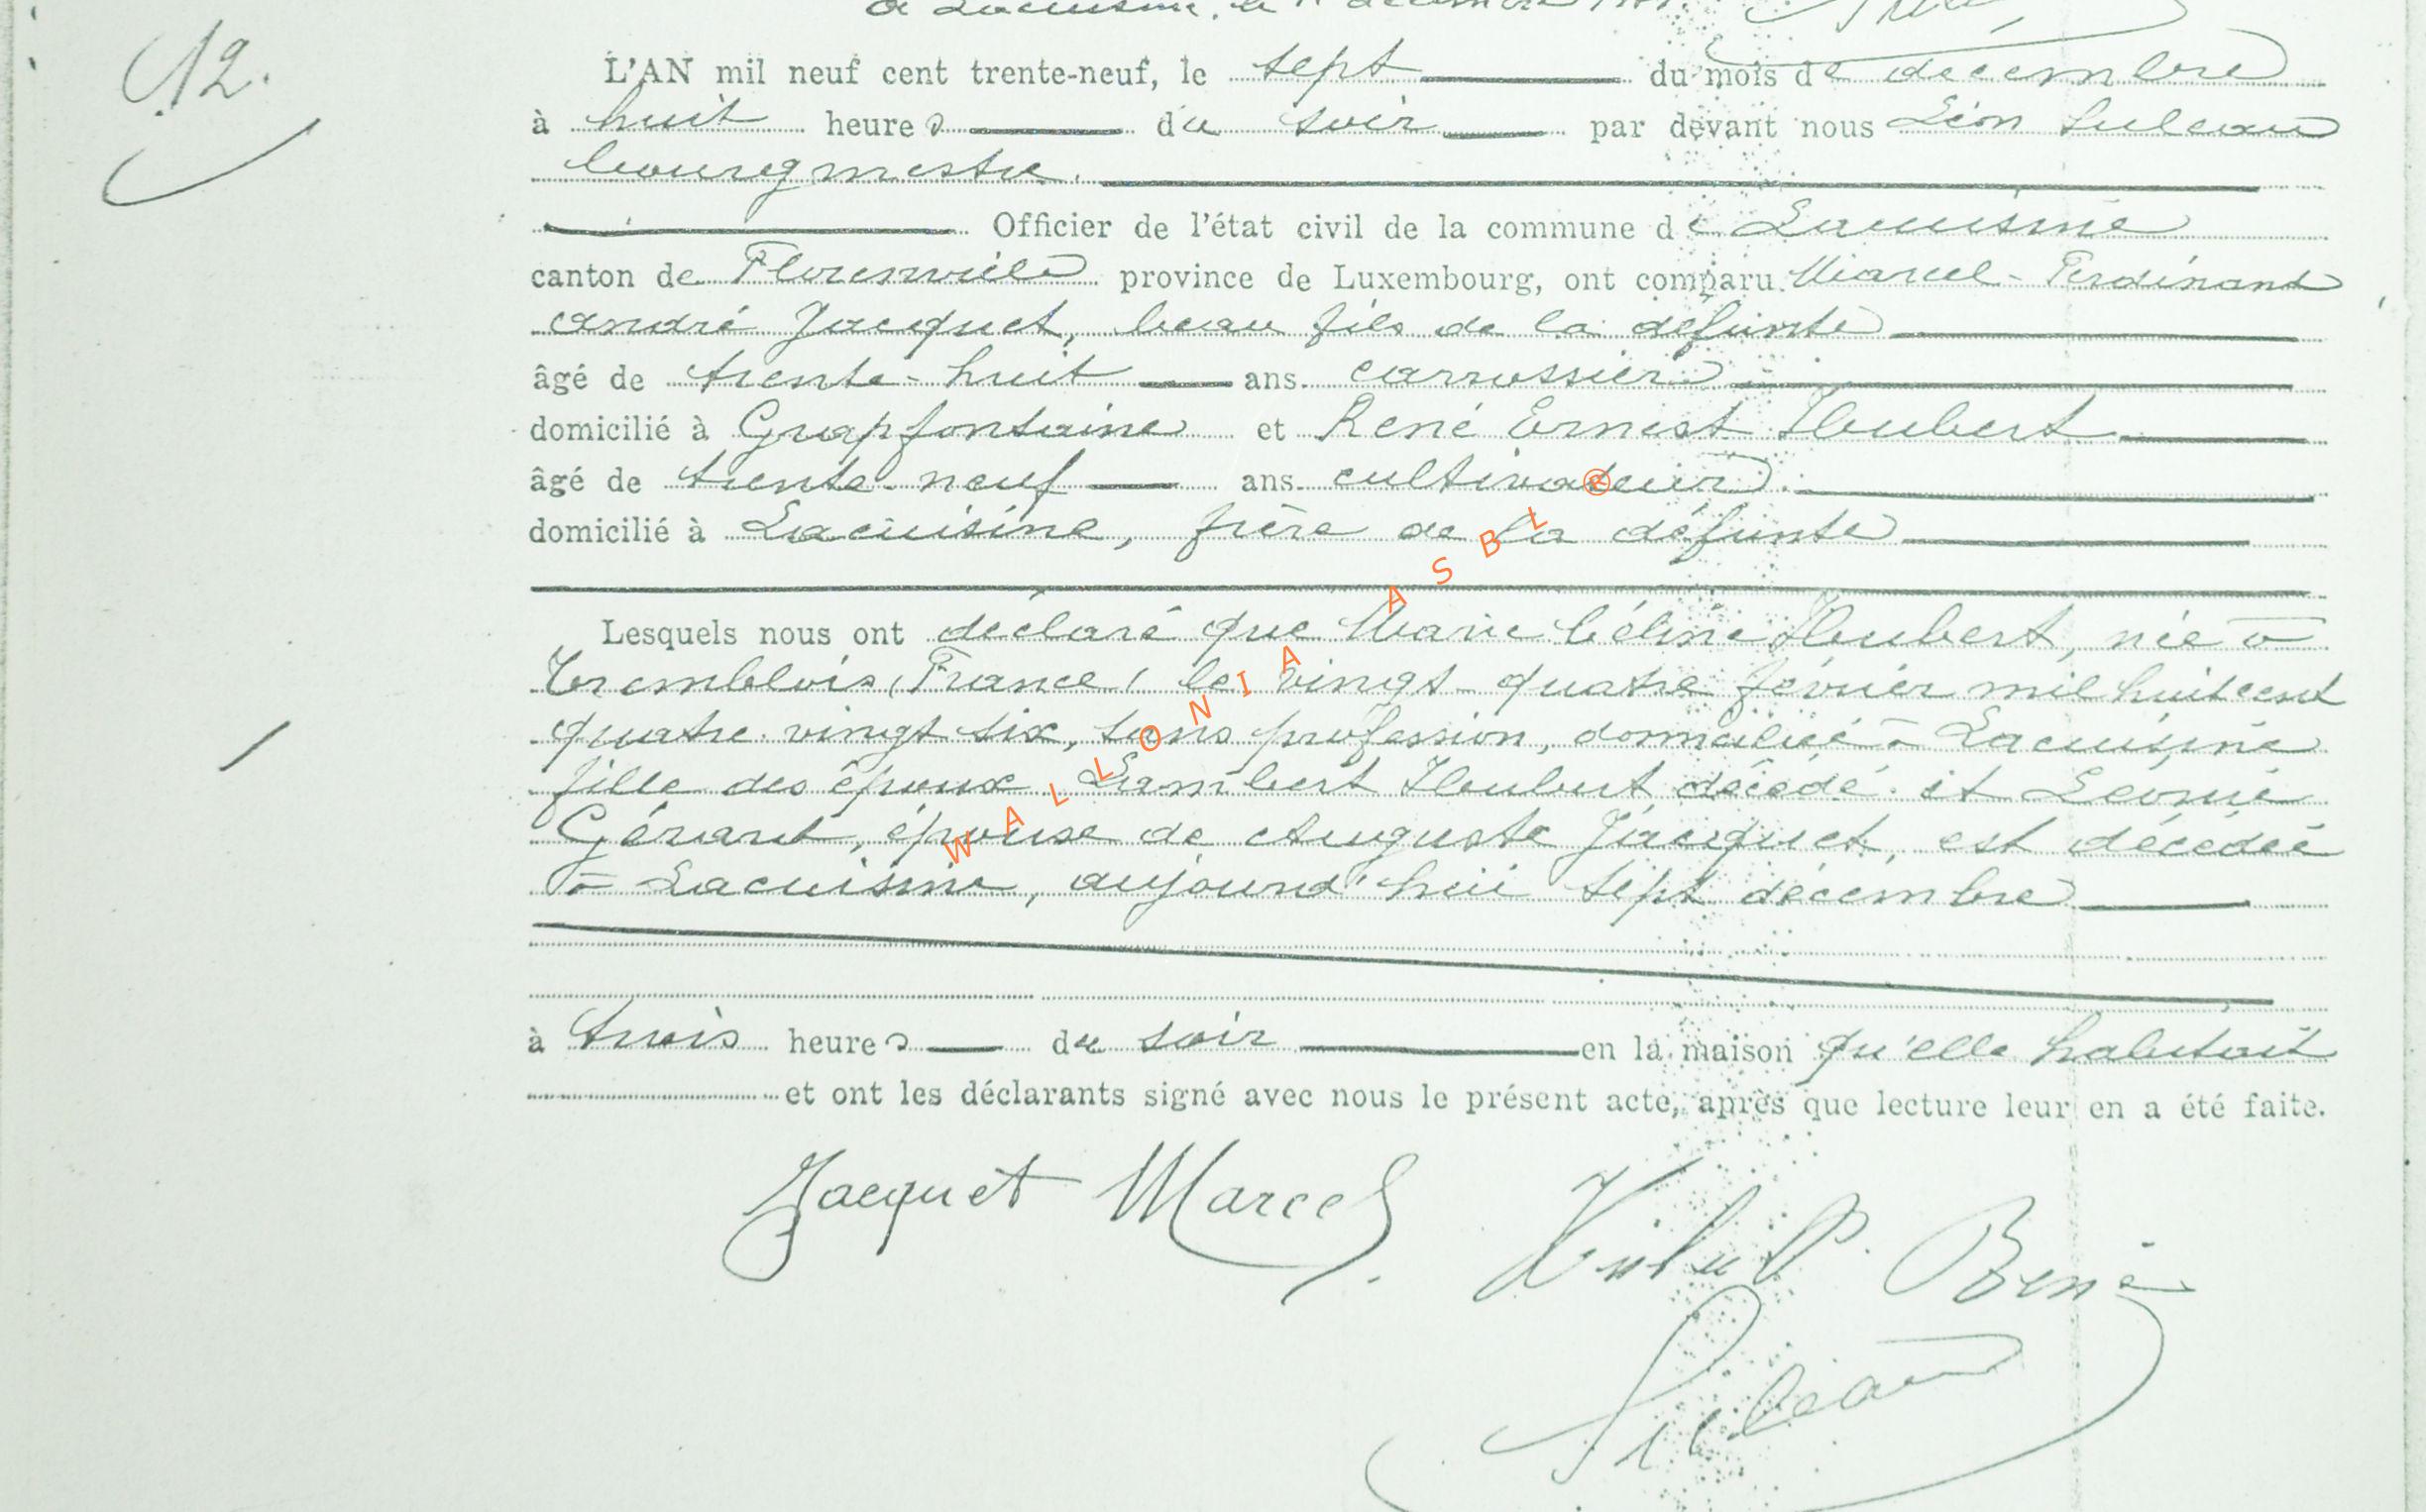 à Lacuisine, le
12.
L'AN mil neuf cent trente-neuf, le sept du mois de décembre
à huit heures du soir par devant nous Léon Suleau
bourgmestre.
Officier de l'état civil de la commune de Lacuisine
canton de Florenville province de Luxembourg, ont comparu Marcel-Ferdinand
André Jacquet, beau fils de la défunte
âgé de trente-huit ans. carrossier
domicilié à Grapfontaine et René Ernest Hubert
âgé de trente-neuf ans. cultivateur
domicilié à Lacuisine, frère de la défunte
Lesquels nous ont déclaré que Marie Céline Hubert, née à
Tremblois (France) le vingt quatre février mil huit cent
quatre vingt six, sans profession, domiciliée à Lacuisine
fille des époux Lambert Hubert décédé et Léonie
Gérard, épouse de Auguste Jacquet, est décédée
à Lacuisine, aujourd'hui sept décembre
à trois heures du soir en la maison qu'elle habitait
et ont les déclarants signé avec nous le présent acte, après que lecture leur en a été faite.
Jacquet Marcel Hubert René
Suleau
WALLONIA ASBL ®